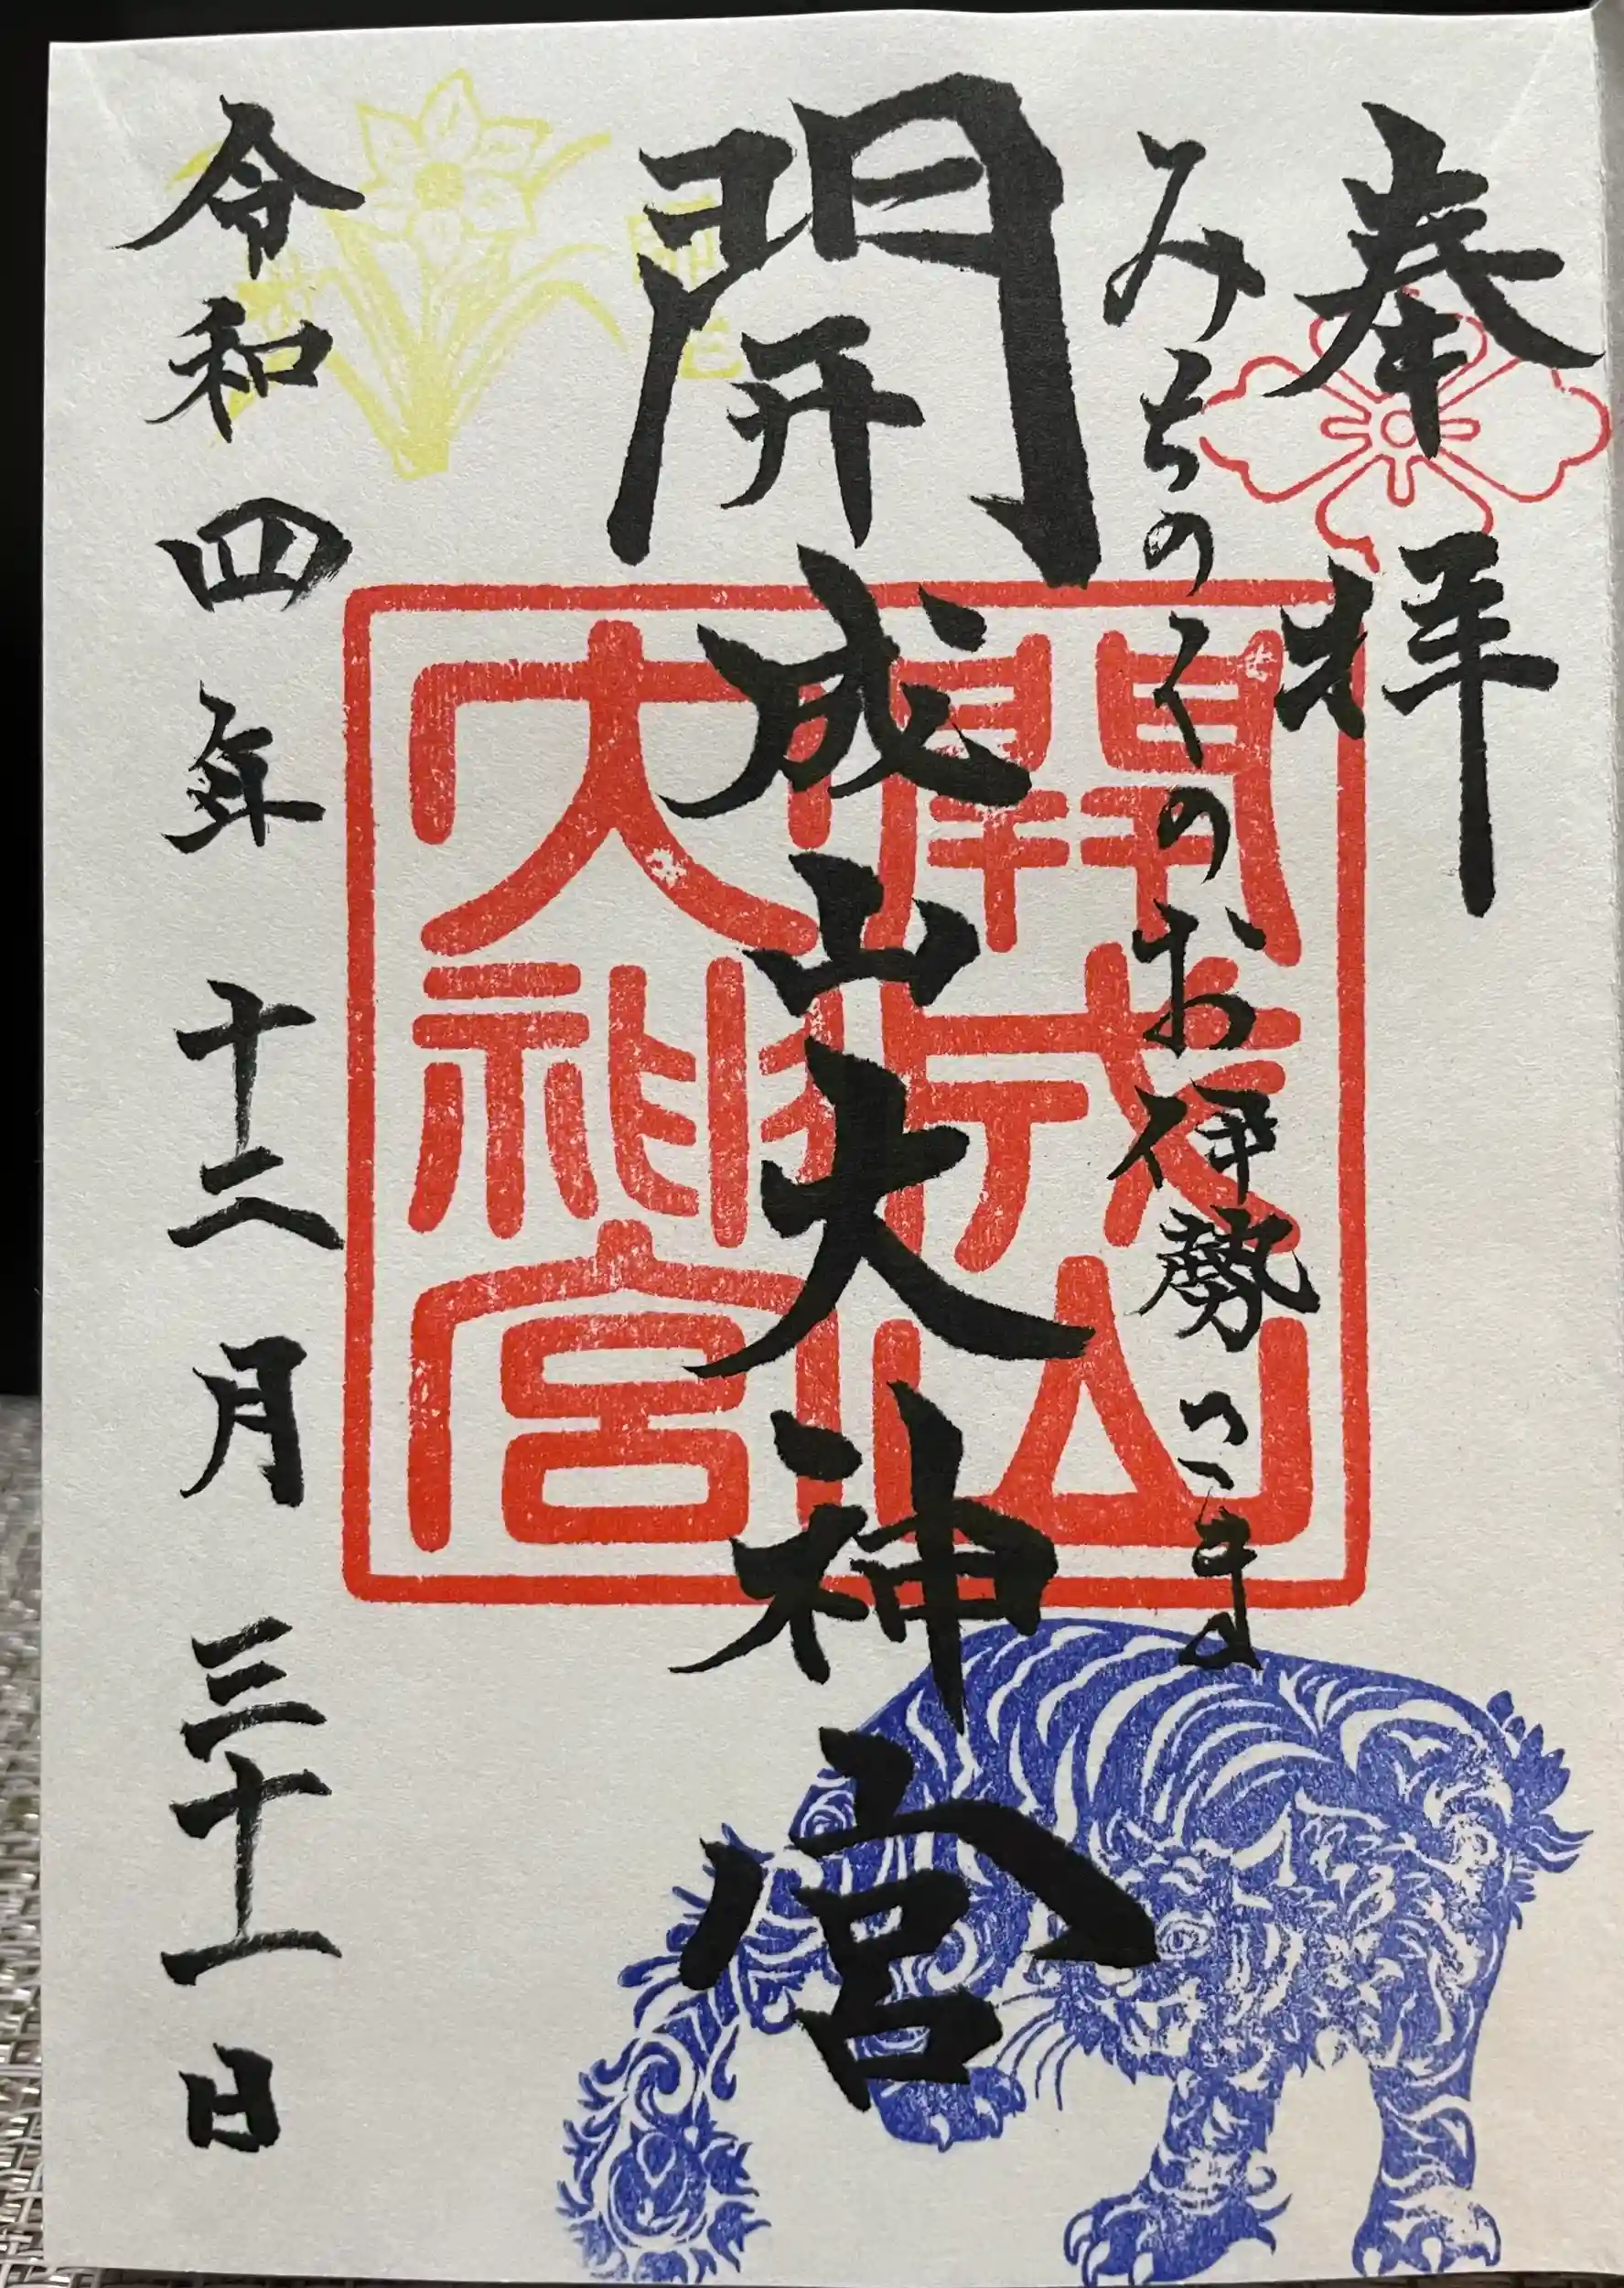 奉拝
みちのくのお伊勢さま
開成山大神宮
令和四年十二月三十一日
開成山
大神宮